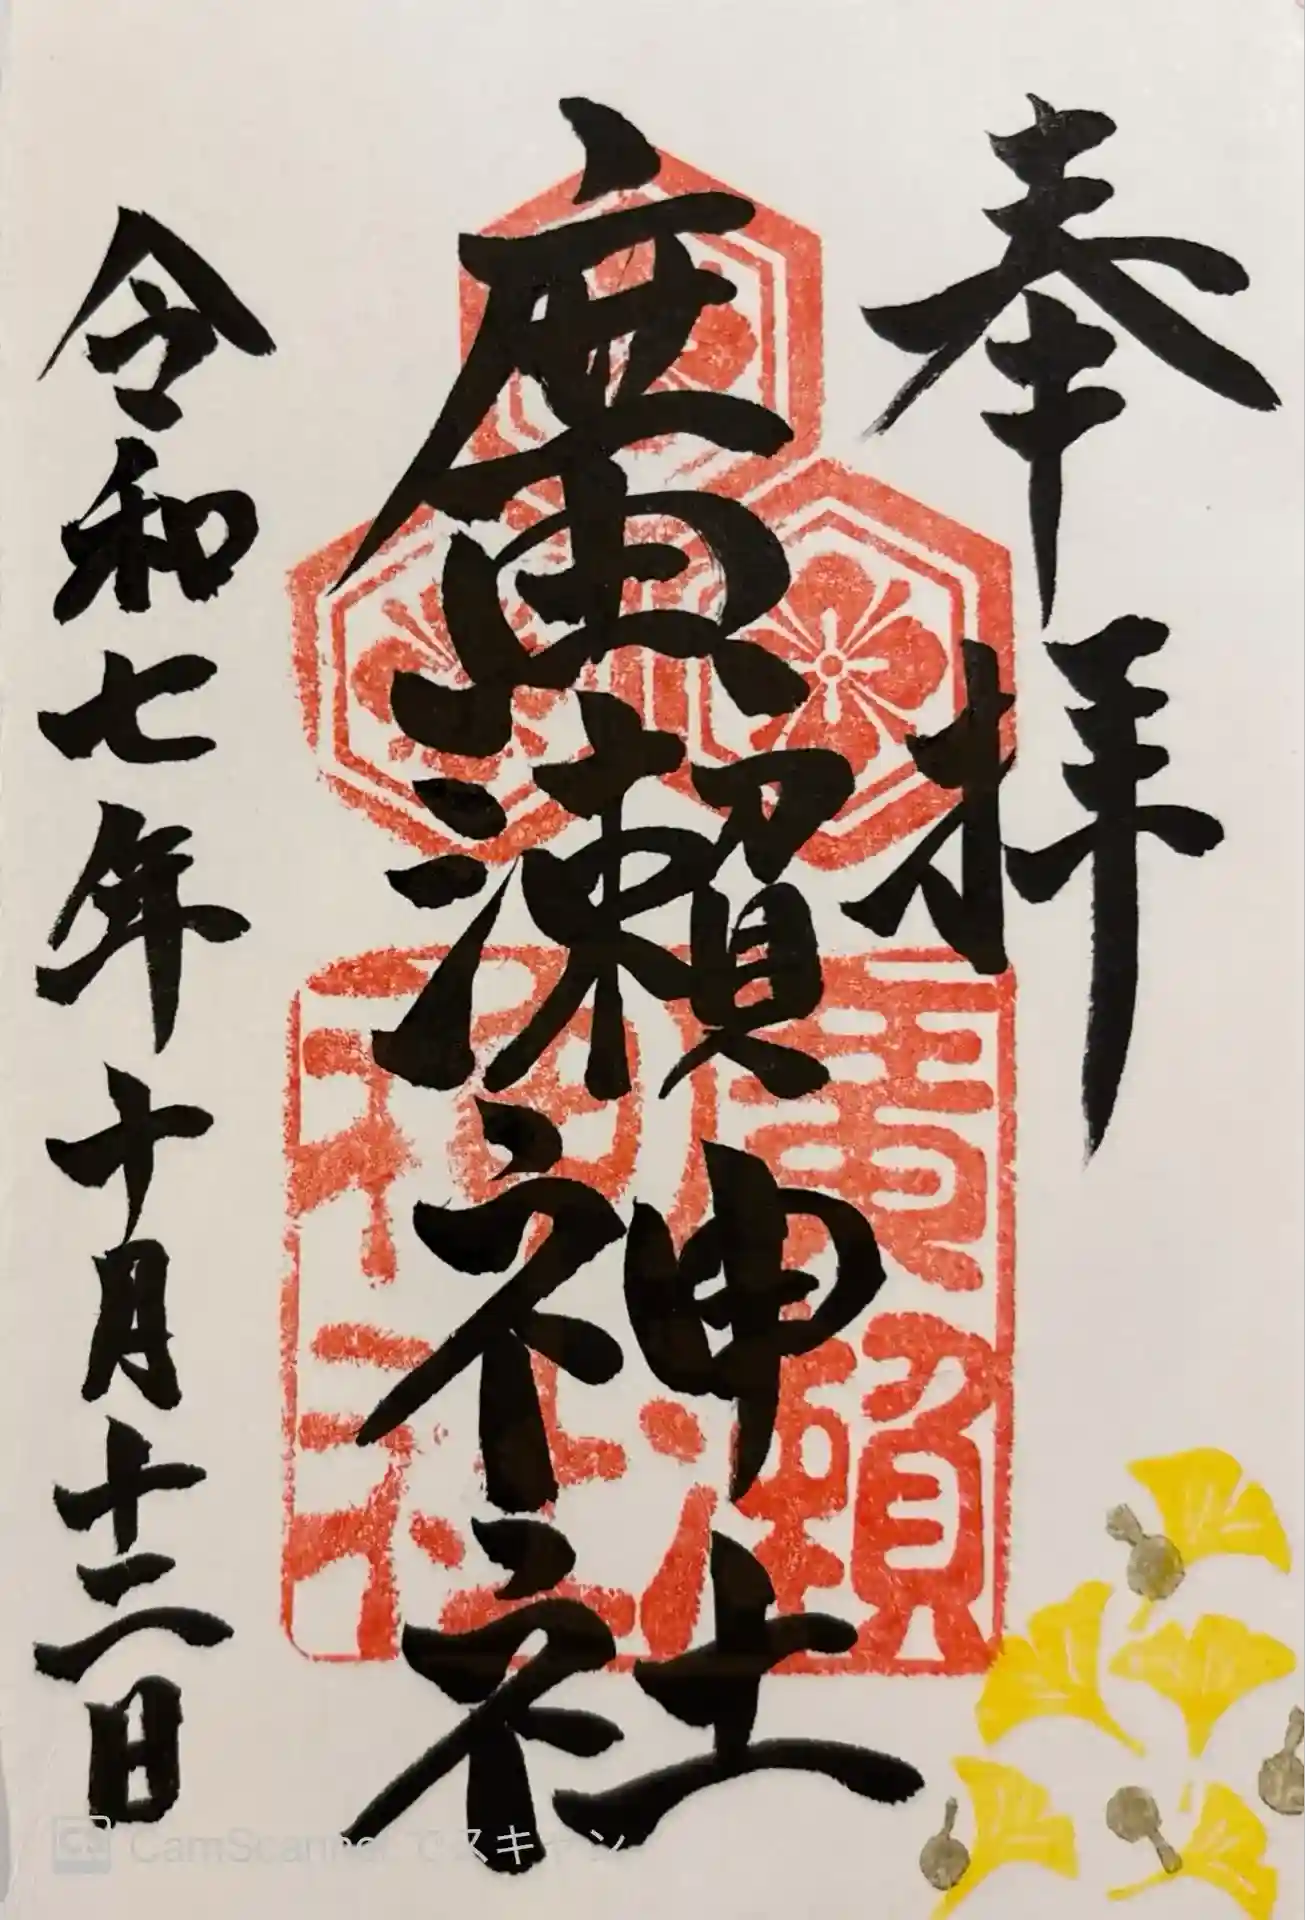 奉拝
廣瀬神社
廣瀬神社
令和七年十月十二日
CamScannerでスキャン